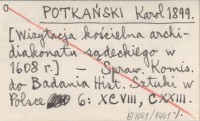 POTKAŃSKI Karol 1899.
[Wizytacja kościelna archi-
diakonatu sądeckiego w
1608 r.] — Spraw. Komis.
do Badania Hist. Sztuki w
Polsce 6: XCVIII, CXXIII.